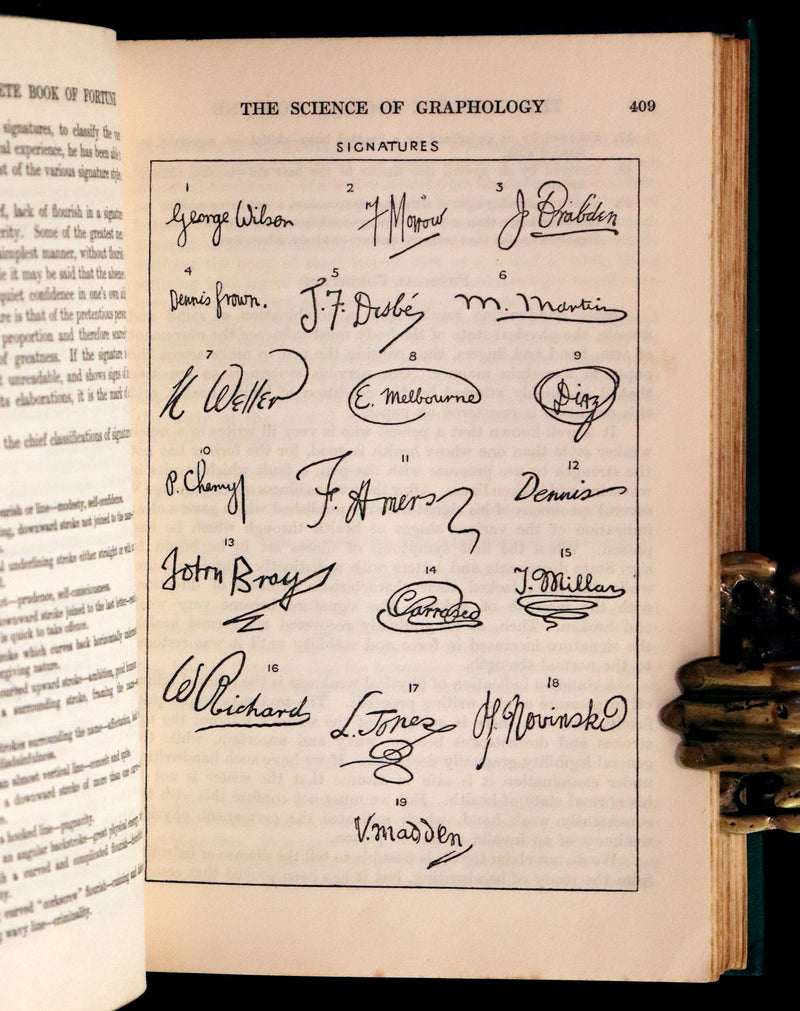 ETE BOOK OF FORTUNE
signatures, to classify the
al experience, he has been able
st of the various signature
f, lack of flourish in a
rity. Some of the greatest
simplest manner, without
le it may be said that the
quiet confidence in one's own
re is that of the pretentious
proportion and therefore
of greatness. If the signature is
t unreadable, and shows signs of
its elaborations, it is the mark of
the chief classifications of
ourish or line—modesty, self-confidence.
downward stroke not joined to the
underlining stroke either straight or
—prudence, self-consciousness.
downward stroke joined to the last letter
is quick to take offence.
which curves back horizontally
giving nature.
upward stroke—ambition, good
a surrounding stroke, framing the
strokes surrounding the name—affectation,
an almost vertical line—conceit and
a downward stroke of more than one
a hooked line—pugnacity.
an angular backstroke—great physical
a curved and complicated
curved "corkscrew" flourish—cunning and
wavy line—criminality.
THE SCIENCE OF GRAPHOLOGY 409
SIGNATURES
1 2 3
George Wilson F Morrow J Drabden
4 5 6
Dennis Brown. J. F. Disbé M. Martin
7 8 9
K Weller E. Melbourne Diaz
10 11 12
P. Cherry F. Amers Dennis
13 14 15
John Bray Carrased J. Millar
16 17 18
W Richard L. Jones H. Novinski
19
V. Madden